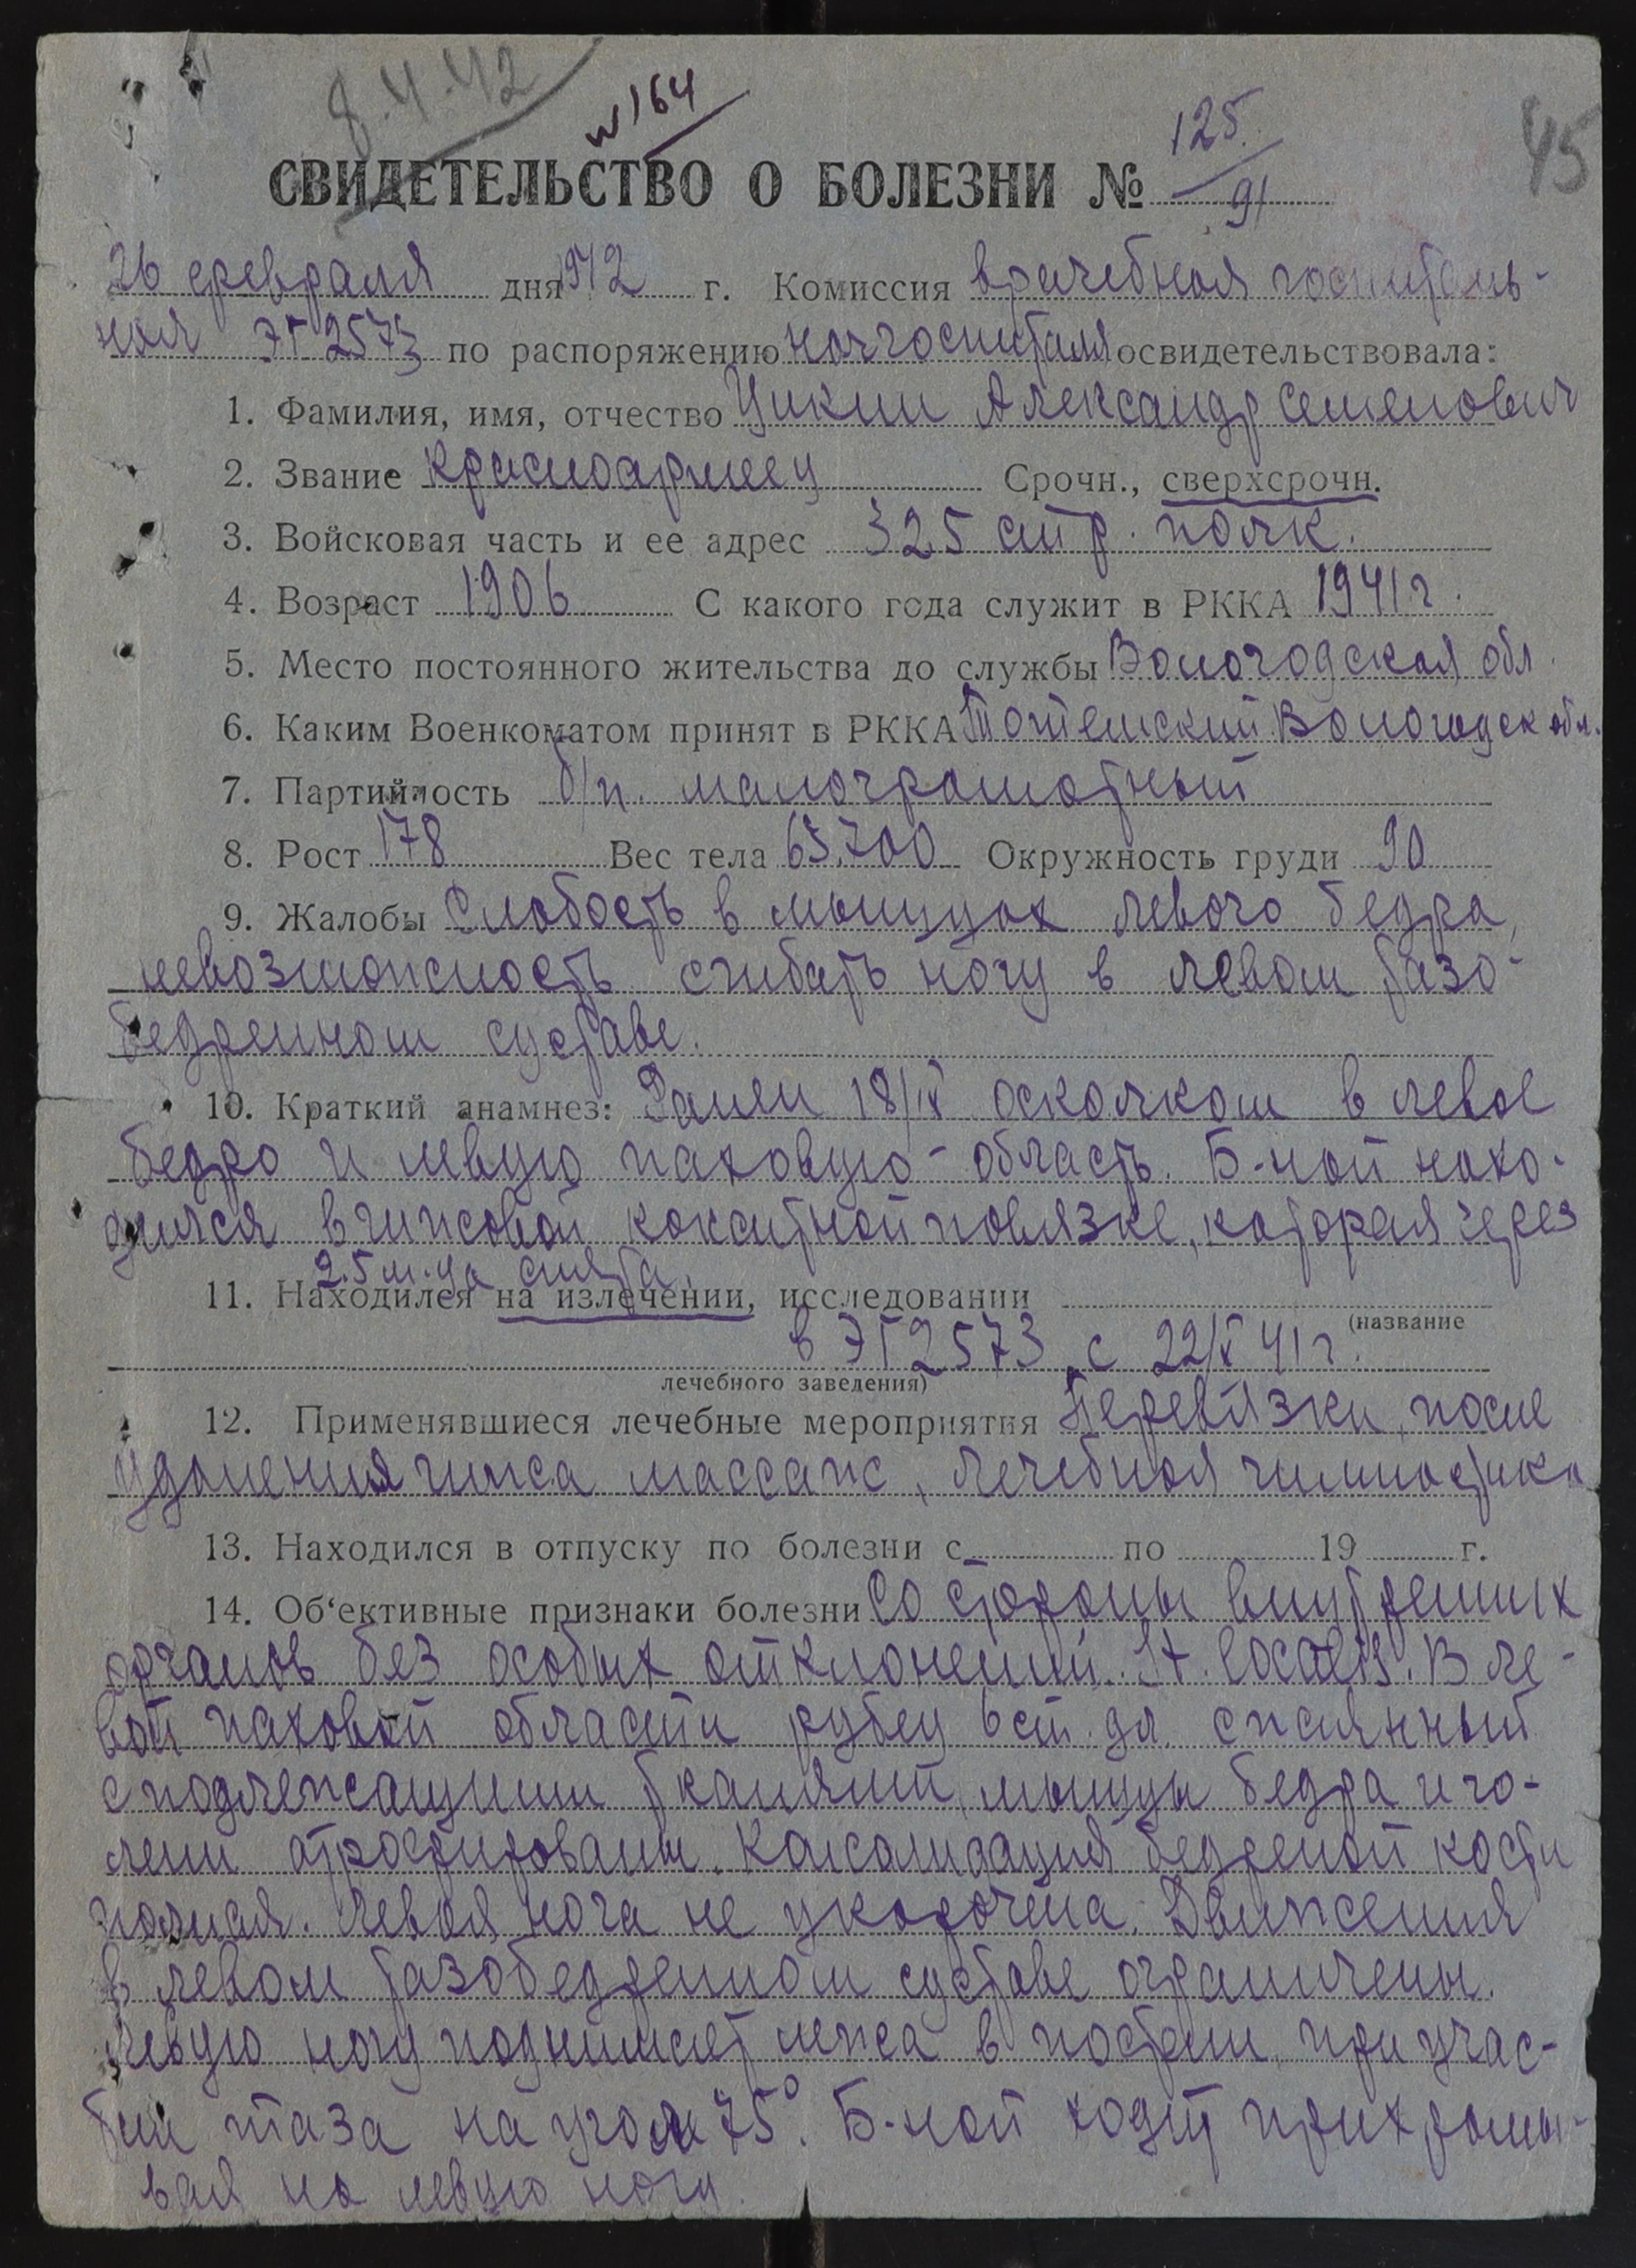 8.4.42
N 164
125.
91
45
СВИДЕТЕЛЬСТВО О БОЛЕЗНИ №
26 февраля дня 1942 г. Комиссия врачебная госпиталь-
ная ЭГ 2573 по распоряжению нач госпиталя освидетельствовала:
1. Фамилия, имя, отчество Цикин Александр Семенович
2. Звание Красноармеец Срочн., сверхсрочн.
3. Войсковая часть и ее адрес 325 стр. полк.
4. Возраст 1906 С какого года служит в РККА 1941 г.
5. Место постоянного жительства до службы Вологодская обл.
6. Каким Военкоматом принят в РККА Тотемский Вологодск обл.
7. Партийность б/п. малограмотный
8. Рост 178 Вес тела 65.700 Окружность груди 90
9. Жалобы Слабость в мышцах левого бедра,
невозможность сгибать ногу в левом тазо-
бедренном суставе.
10. Краткий анамнез: Ранен 18/IX осколком в левое
бедро и левую паховую область. Б-ной нахо-
дился в гипсовой кокситной повязке, которая через
2.5 м-ца снята.
11. Находился на излечении, исследовании
(название
в ЭГ 2573 с 22/X 41 г.
лечебного заведения)
12. Применявшиеся лечебные мероприятия Перевязки, после
удаления гипса массаж, лечебная гимнастика
13. Находился в отпуску по болезни с по 19 г.
14. Об'ективные признаки болезни Со стороны внутренних
органов без особых отклонений. St. localis. В ле-
вой паховой области рубец 6 см. дл. спаянный
с подлежащими тканями, мышцы бедра и го-
лени атрофированы. Консолидация бедреной кости
полная. Левая нога не укорочена. Движения
в левом тазобедренном суставе ограничены.
Левую ногу поднимает лежа в постели, при учас-
тии таза на угол 75°. Б-ной ходит прихрамы-
вая на левую ногу.